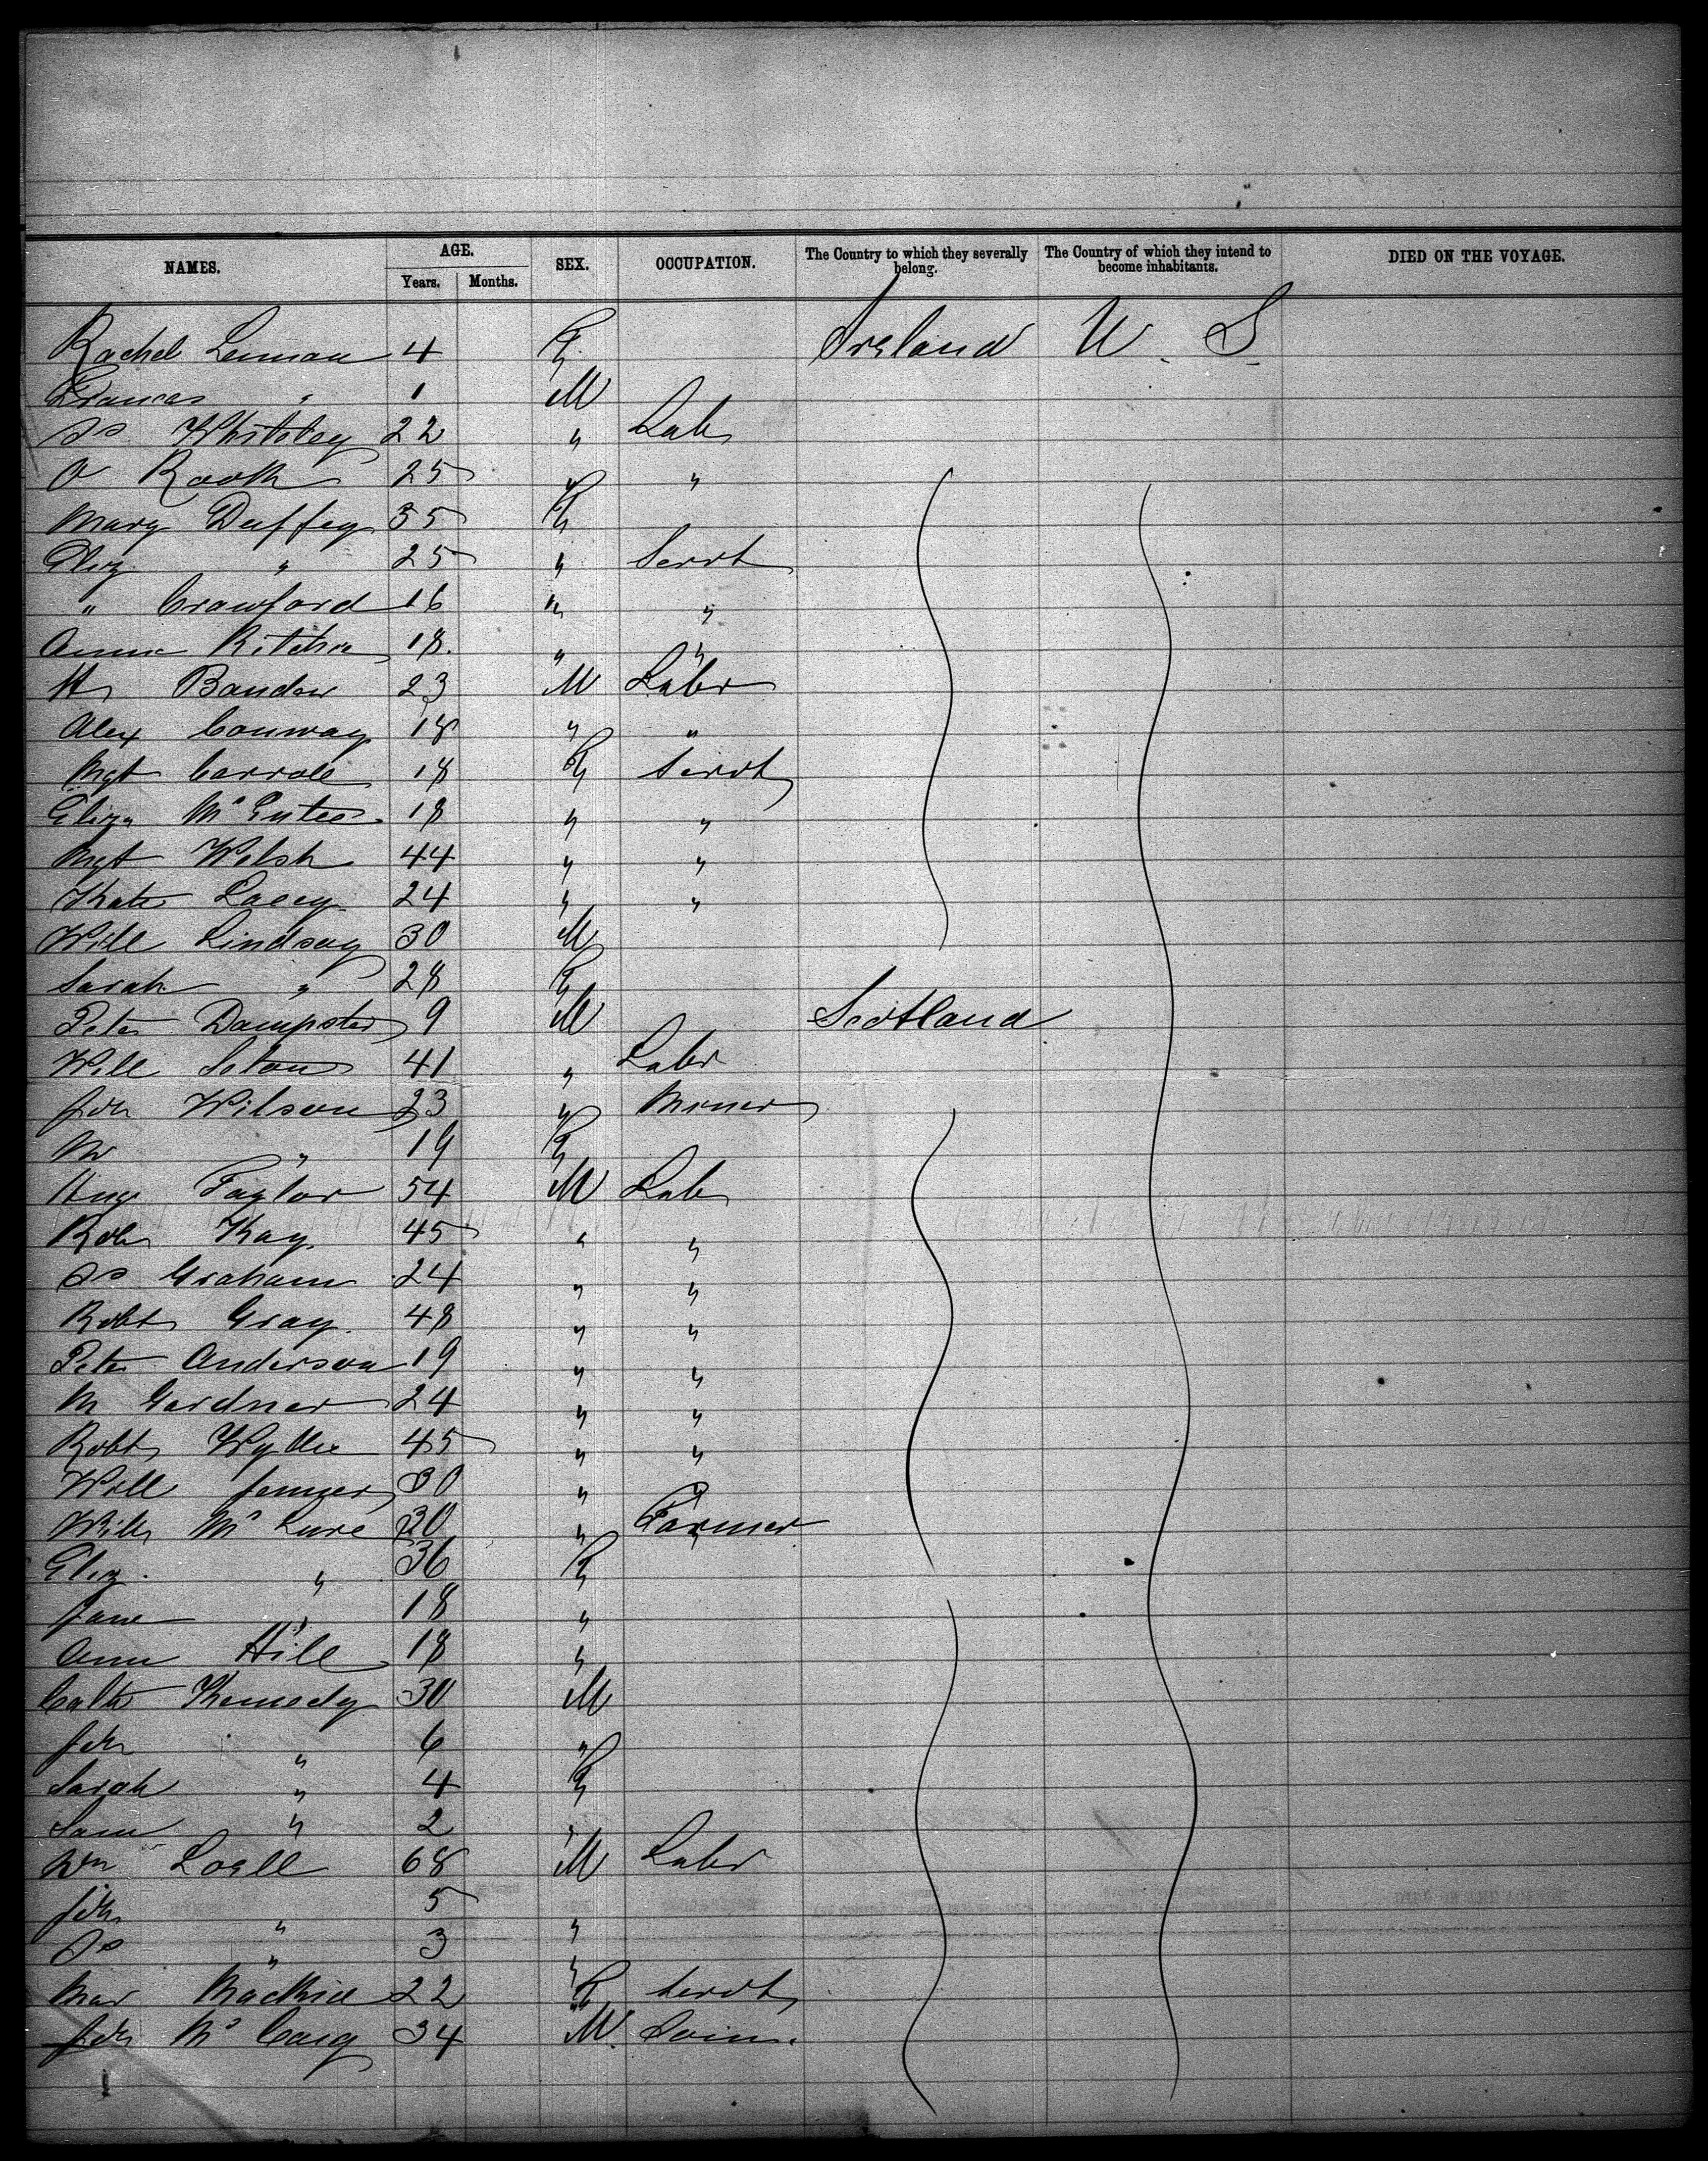 NAMES. AGE. SEX. OCCUPATION. The Country to which they severally belong. The Country of which they intend to become inhabitants. DIED ON THE VOYAGE.
Years. Months.
Rachel Lennan 4 F Ireland U. S.
Frances " 1 M
Js Whiteley 22 " Labr
O Rooth 25 " "
Mary Duffey 35 F
Eliz " 25 " Servt
" Crawford 16 " "
Annie Ritchie 18. " "
Hy 23 M Labr
Alex Conway 18 " "
Mgt Carroll 18 F Servt
Eliza McEntee 18 " "
Mgt Welsh 44 " "
Kate Lacey 24 " "
Will Lindsay 30 M
Sarah " 28 F
Peter Dampster 9 M Scotland
Will Seton 41 " Labr
Jdn Wilson 23 " Miner
M " 19 F
Hug Taylor 54 M Labr
Robt Kay 45 " "
Js Graham 24 " "
Robt Gray 48 " "
Peter Anderson 19 " "
M Gardner 24 " "
Robt Wyllie 45 " "
Will 30 " "
Will McLure 30 " Farmer
Eliz. " 36 F
Jane " 18 "
Ann Hill 18 "
Cath Kennedy 30 M
Jdn " 6 "
Sarah " 4 F
Sam " 2 "
Wm Loell 68 M Labr
Jdn " 5 "
Js " 3 "
Mar Mackie 22 F Servt
Jdn McCaig 34 M.